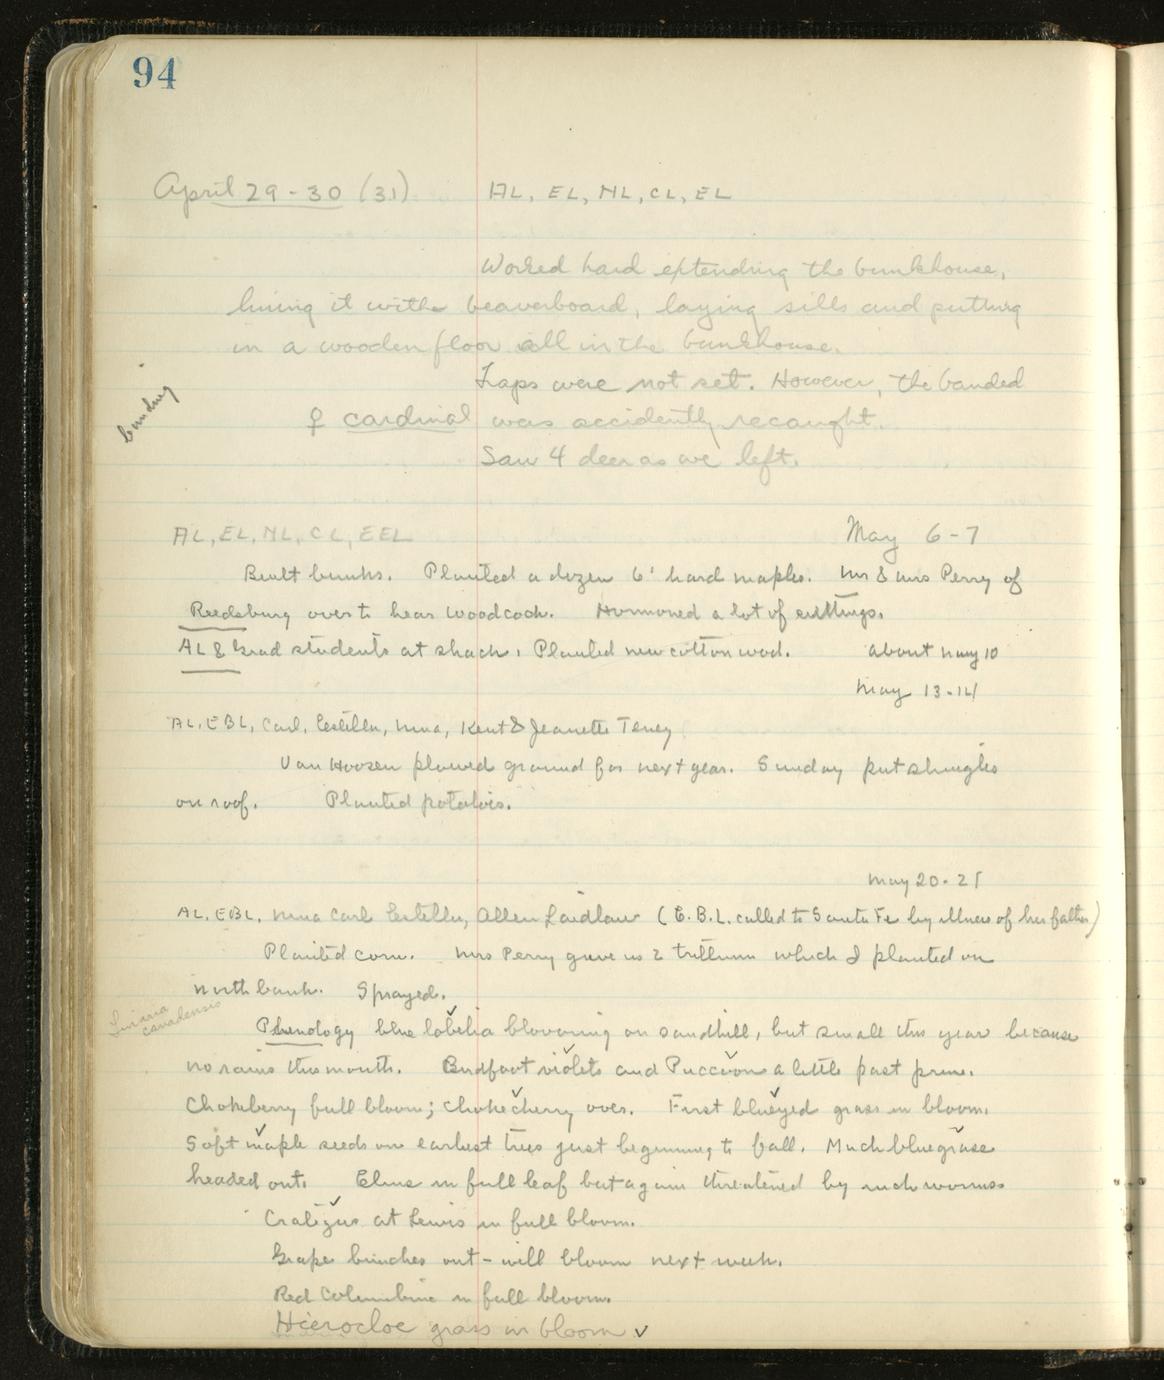 94
April 29-30 (31) AL, EL, NL, CL, EL
Worked hard extending the bunkhouse,
lining it with beaverboard, laying sills and putting
in a wooden floor all in the bunkhouse.
Traps were not set. However, the banded
banding
♀ cardinal was accidently recaught.
Saw 4 deer as we left.
AL, EL, NL, CL, EEL May 6-7
Built bunks. Planted a dozen 6' hard maples. Mr & Mrs Perry of
Reedsburg over to hear woodcock. Hormoned a lot of cuttings.
AL & Grad students at shack. Planted new cottonwood. about May 10
May 13-14
AL, EBL, Carl, Estella, Nina, Kent & Jeanette Teney
Van Hoosen plowed ground for next year. Sunday put shingles
on roof. Planted potatoes.
May 20-21
AL, EBL, Nina Carl Estella, Allen Laidlaw (E.B.L. called to Santa Fe by illness of her father)
Planted corn. Mrs Perry gave us 2 trillium which I planted on
north bank. Sprayed.
Linaria
canadensis
Phenology blue lobelia blooming on sandhill, but small this year because
no rains this month. Birdfoot violets and Puccoon a little past prime.
Chokeberry full bloom; chokecherry over. First blueeyed grass in bloom.
Soft maple seeds on earliest trees just beginning to fall. Much bluegrass
headed out. Elms in full leaf but again threatened by inch worms
Crategus at Lewis in full bloom.
Grape bunches out - will bloom next week.
Red Columbine in full bloom.
Hierocloe grass in bloom ✓